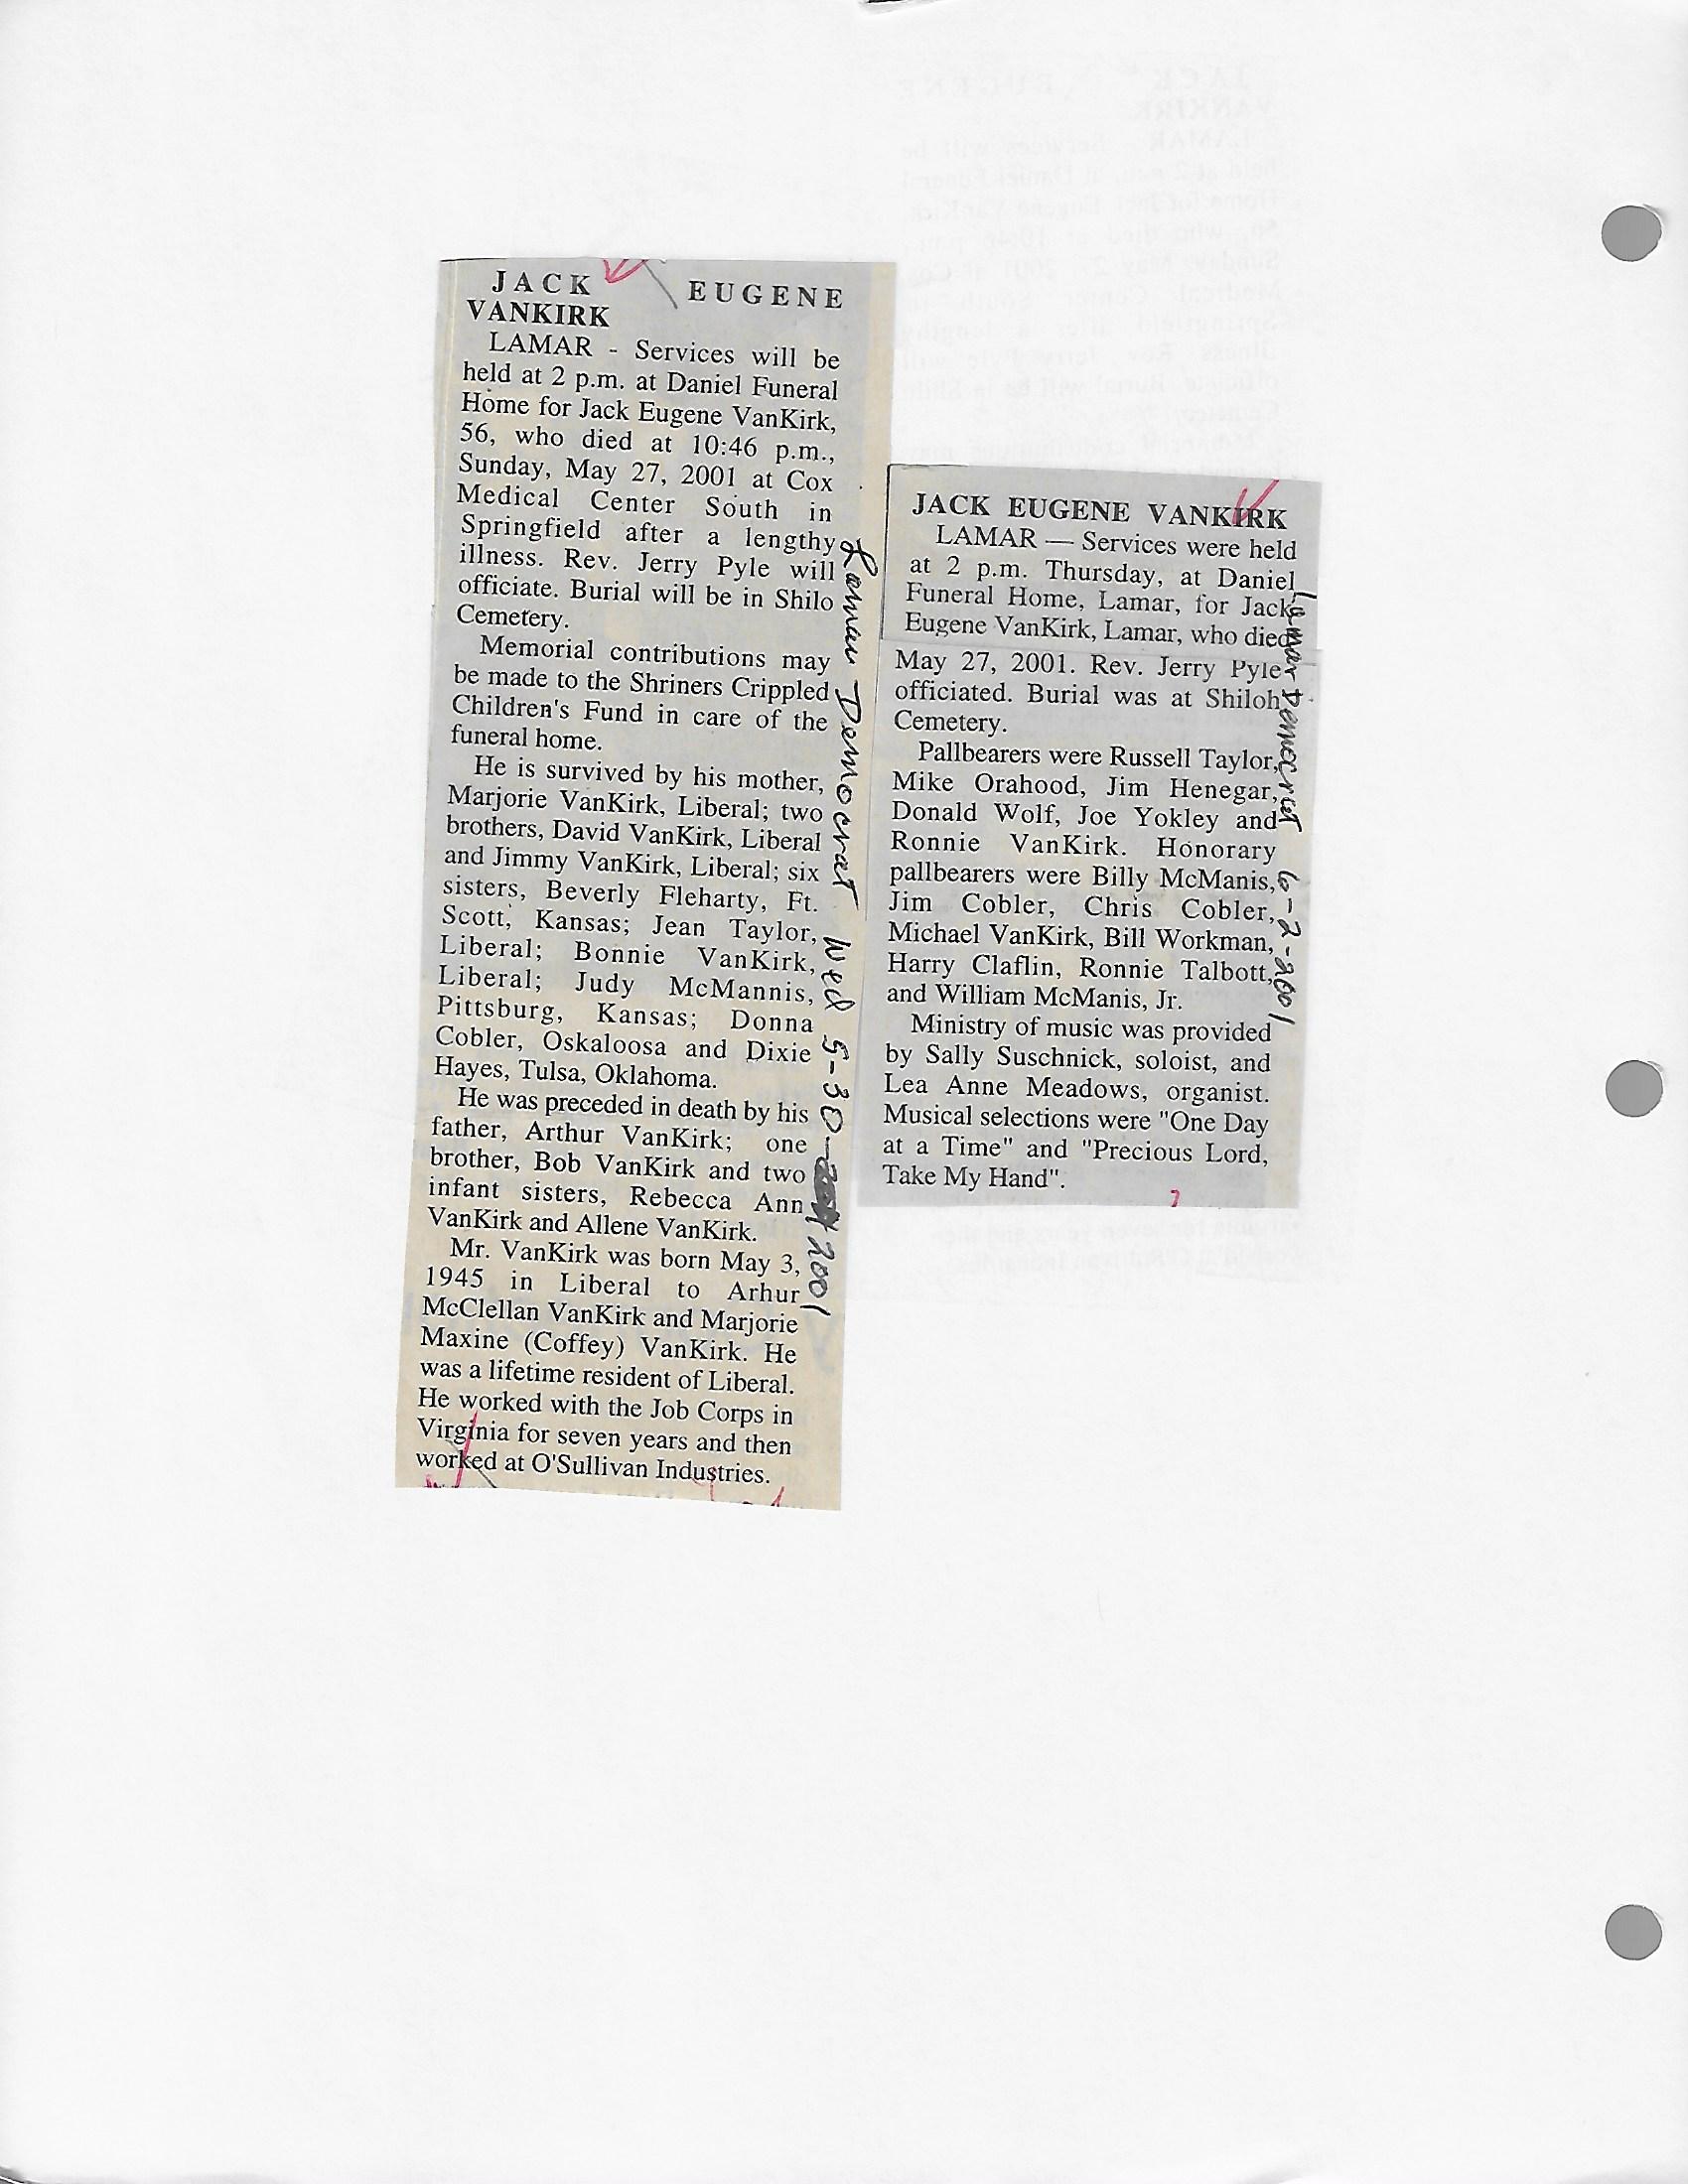 JACK EUGENE
VANKIRK
LAMAR - Services will be
held at 2 p.m. at Daniel Funeral
Home for Jack Eugene VanKirk,
56, who died at 10:46 p.m.,
Sunday, May 27, 2001 at Cox
Medical Center South in
Springfield after a lengthy
illness. Rev. Jerry Pyle will
officiate. Burial will be in Shilo
Cemetery.
Memorial contributions may
be made to the Shriners Crippled
Children's Fund in care of the
funeral home.
He is survived by his mother,
Marjorie VanKirk, Liberal; two
brothers, David VanKirk, Liberal
and Jimmy VanKirk, Liberal; six
sisters, Beverly Fleharty, Ft.
Scott, Kansas; Jean Taylor,
Liberal; Bonnie VanKirk,
Liberal; Judy McMannis,
Pittsburg, Kansas; Donna
Cobler, Oskaloosa and Dixie
Hayes, Tulsa, Oklahoma.
He was preceded in death by his
father, Arthur VanKirk; one
brother, Bob VanKirk and two
infant sisters, Rebecca Ann
VanKirk and Allene VanKirk.
Mr. VanKirk was born May 3,
1945 in Liberal to Arhur
McClellan VanKirk and Marjorie
Maxine (Coffey) VanKirk. He
was a lifetime resident of Liberal.
He worked with the Job Corps in
Virginia for seven years and then
worked at O'Sullivan Industries.
Lamar Democrat Wed 5-30-2001
JACK EUGENE VANKIRK
LAMAR — Services were held
at 2 p.m. Thursday, at Daniel
Funeral Home, Lamar, for Jack
Eugene VanKirk, Lamar, who died
May 27, 2001. Rev. Jerry Pyle
officiated. Burial was at Shiloh
Cemetery.
Pallbearers were Russell Taylor,
Mike Orahood, Jim Henegar,
Donald Wolf, Joe Yokley and
Ronnie VanKirk. Honorary
pallbearers were Billy McManis,
Jim Cobler, Chris Cobler,
Michael VanKirk, Bill Workman,
Harry Claflin, Ronnie Talbott,
and William McManis, Jr.
Ministry of music was provided
by Sally Suschnick, soloist, and
Lea Anne Meadows, organist.
Musical selections were "One Day
at a Time" and "Precious Lord,
Take My Hand".
Lamar Democrat 6-2-2001